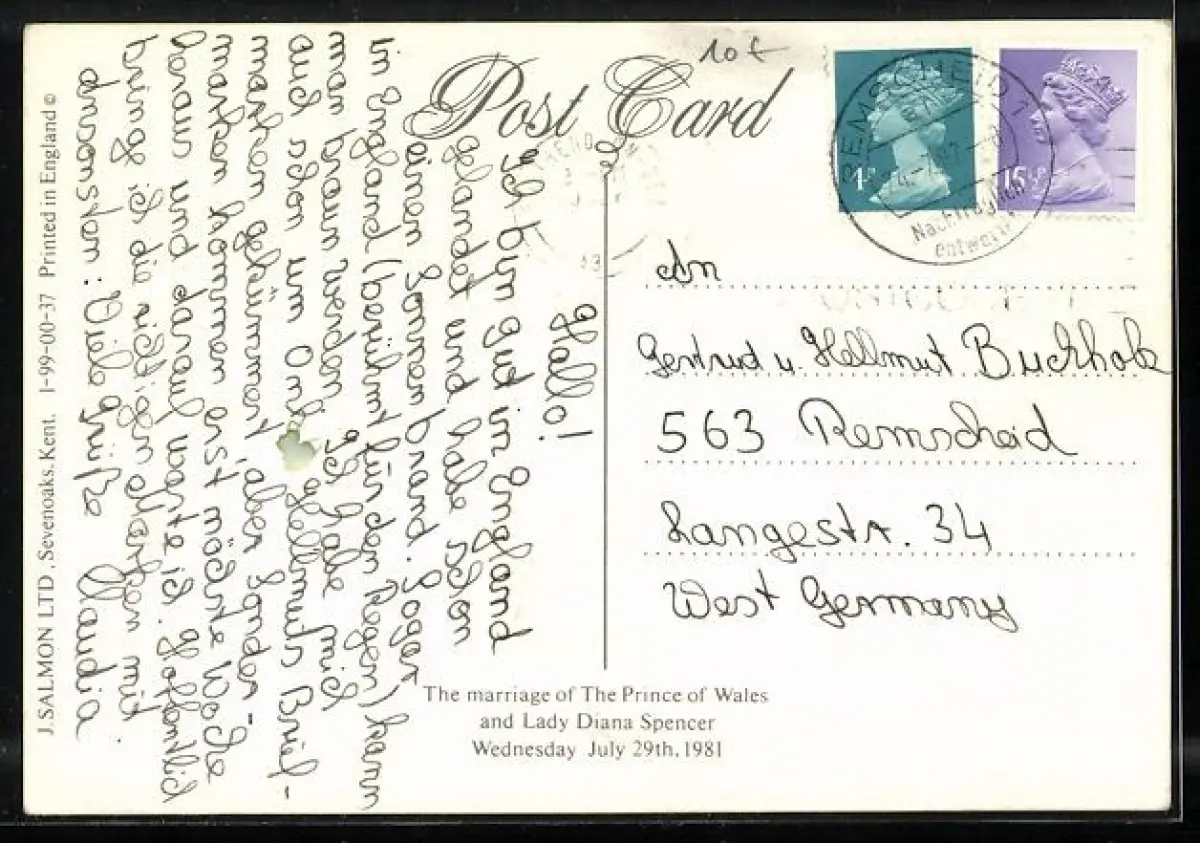 Post Card
10 €
Hallo!
Ich bin gut in England
gelandet und habe schon
einen Sonnenbrand. Sogar
in England (berühmt für den Regen) kann
man braun werden. Ich habe mich
auch schon um Onkel Hellmuts Brief-
marken gekümmert, aber Sonder-
marken kommen erst nächste Woche
heraus und darauf warte ich. Hoffentlich
bringe ich die richtigen Marken mit
ansonsten: Viele Grüße
Claudia
4P
15½P
REMSCHEID 1
Nachträglich
entwertet
An
Gertrud u. Hellmut Buchholz
563 Remscheid
Langestr. 34
West Germany
The marriage of The Prince of Wales
and Lady Diana Spencer
Wednesday July 29th, 1981
J. SALMON LTD., Sevenoaks, Kent. 1-99-00-37 Printed in England ©